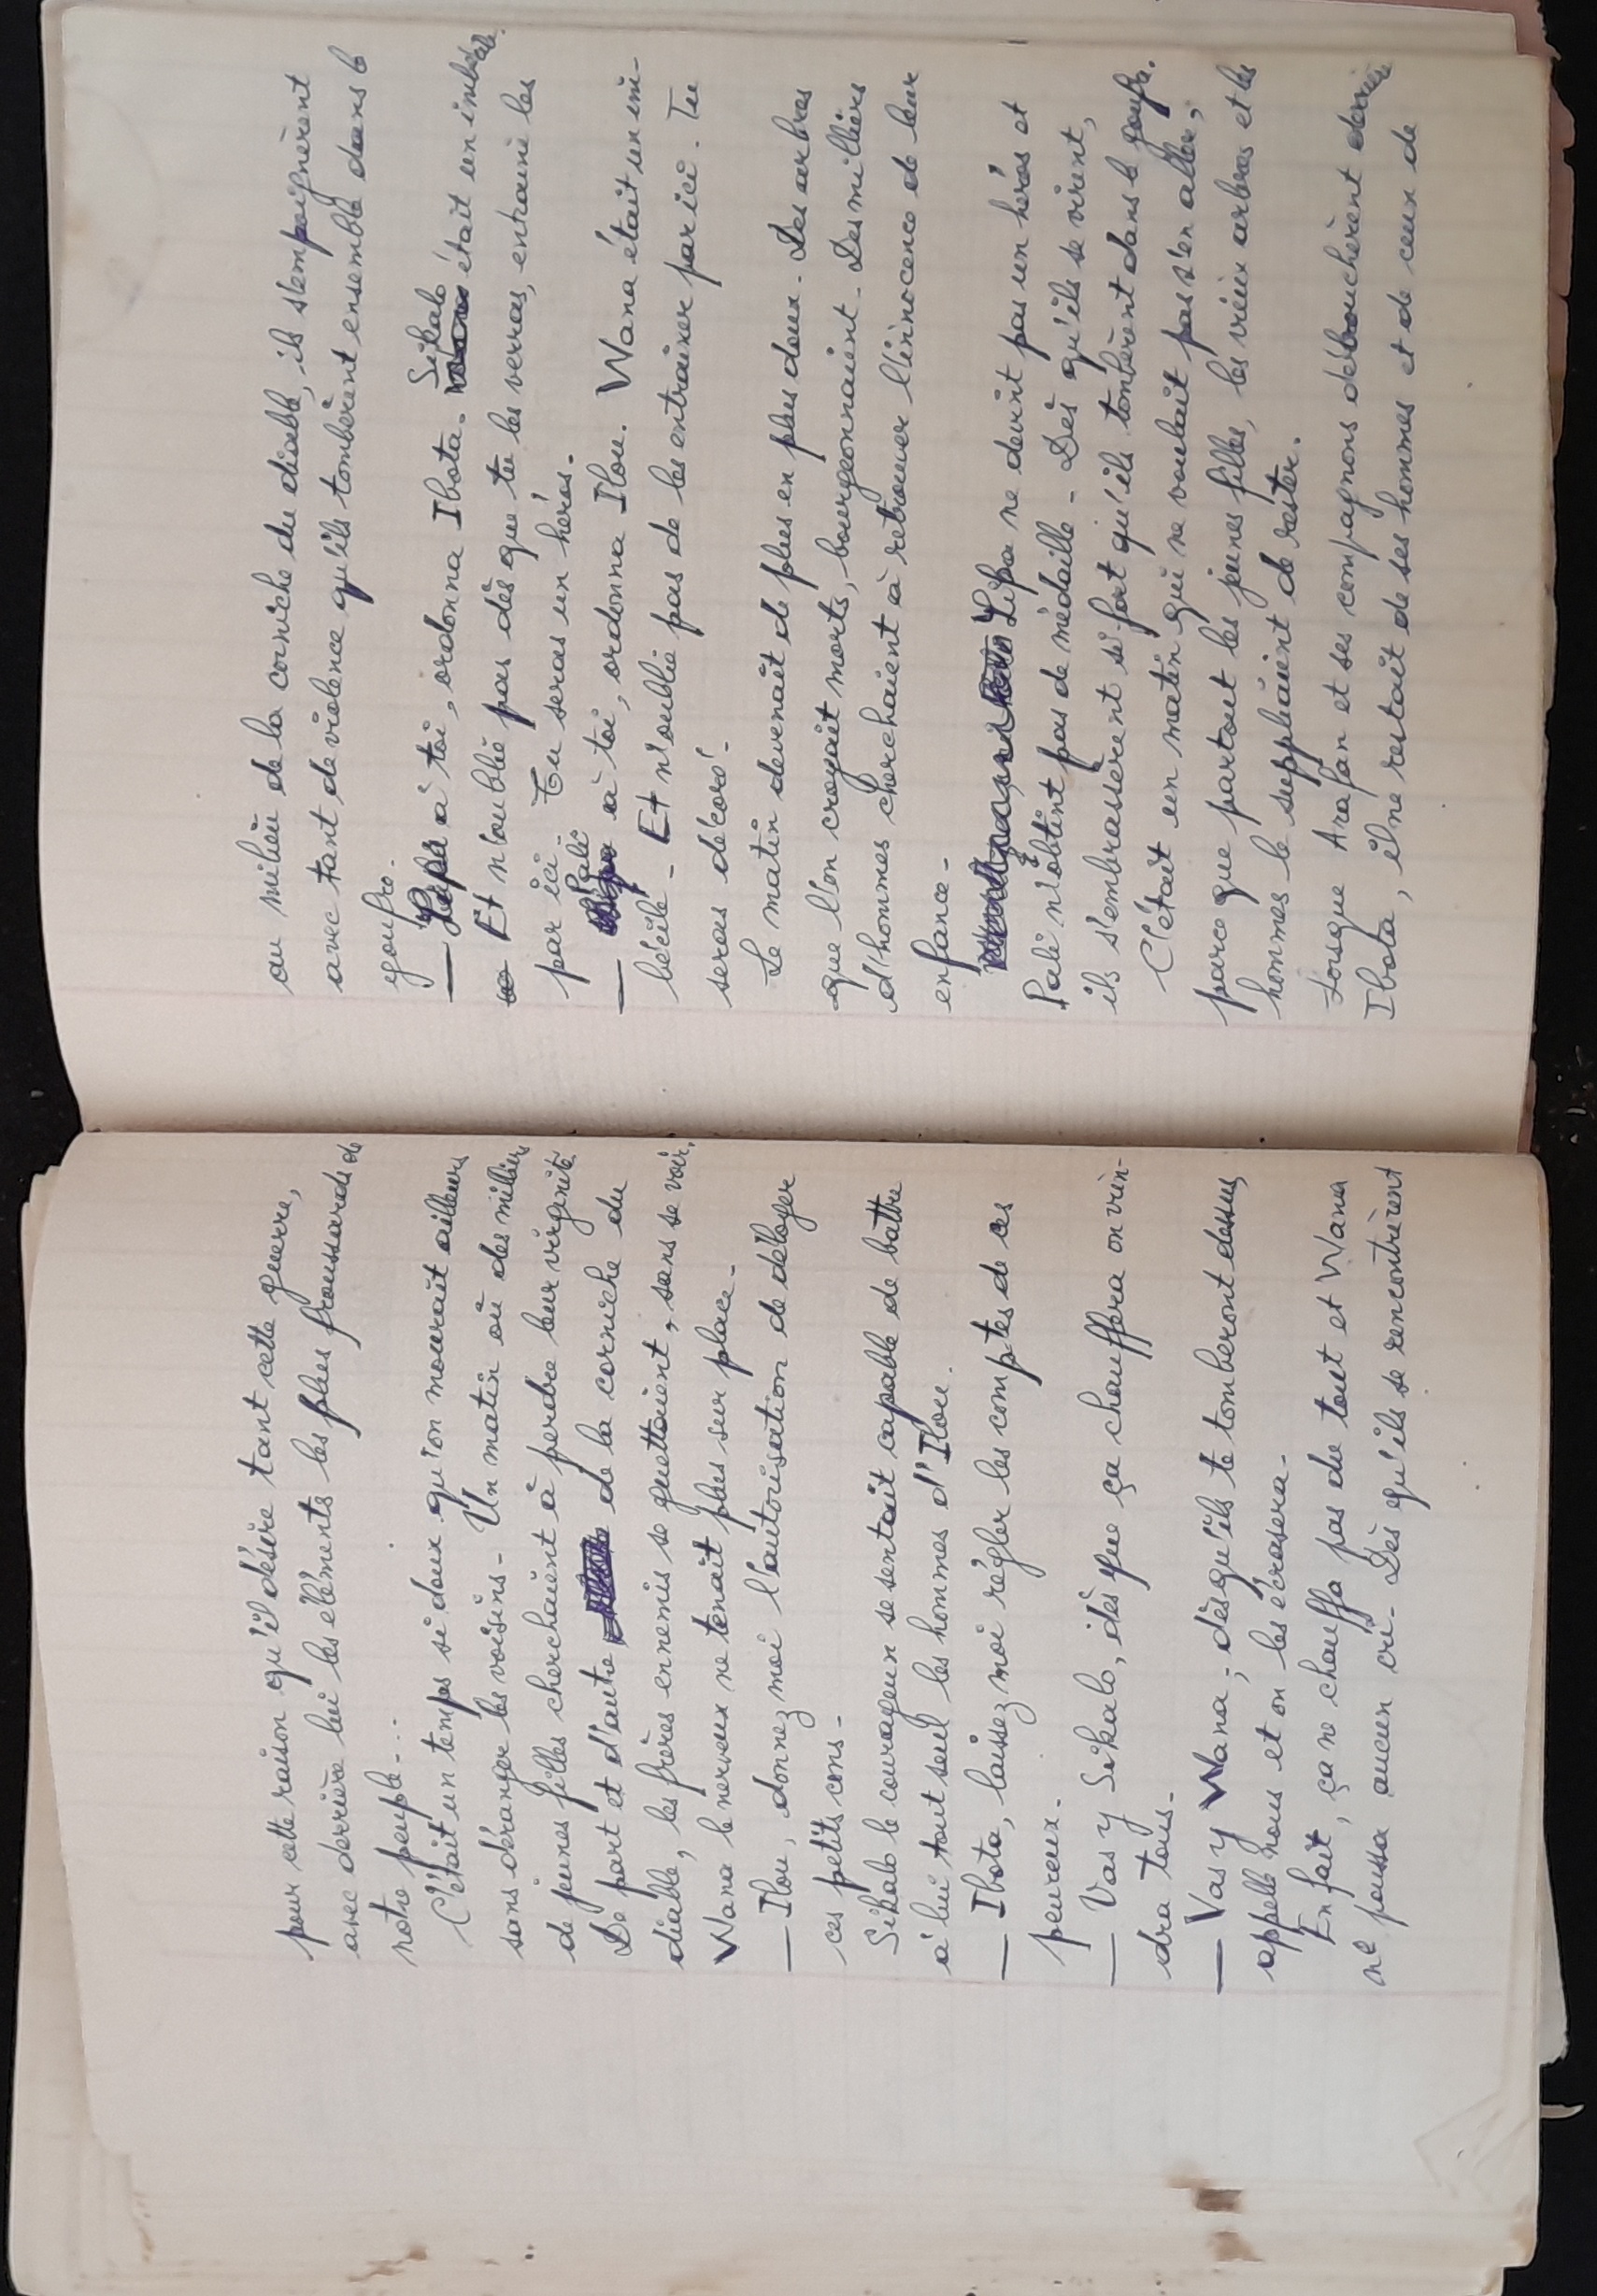 pour cette raison qu'il désire tant cette guerre,
avec derrière lui les éléments les plus froussards de
notre peuple...
C'était un temps si doux qu'on mourait ailleurs
sans déranger les voisins - Un matin où des milliers
de jeunes filles cherchaient à perdre leur virginité.
De part et d'autre de la corniche du
diable, les frères ennemis se guettaient, sans se voir.
Wana le nerveux ne tenait plus sur place -
— Ilou, donnez moi l'autorisation de déloger
ces petits cons -
Sikalo le courageux se sentait capable de battre
à lui tout seul les hommes d'Ilou.
— Ibota, laissez moi régler les comptes de ces
peureux.
— Vas y Sikalo, dès que ça chauffera on vien-
dra tous.
— Vas y Wana, dès qu'ils te tomberont dessus,
appelle nous et on les écrasera -
En fait, ça ne chauffa pas du tout et Wana
ne poussa aucun cri - Dès qu'ils se rencontrèrent
au milieu de la corniche du diable, ils s'empoignèrent
avec tant de violence qu'ils tombèrent ensemble dans le
gouffre.
— Lipa à toi, ordonna Ibota. Sikalo était un imbécile.
Et n'oublie pas dès que tu les verras, entraine les
par ici - Tu seras un héros.
— Pali à toi, ordonna Ilou. Wana était un im-
bécile - Et n'oublie pas de les entraîner par ici. Tu
seras décoré -
Le matin devenait de plus en plus doux. Des arbres
que l'on croyait morts, bourgeonnaient. Des milliers
d'hommes cherchaient à retrouver l'innocence de leur
enfance -
Lipa ne devint pas un héros et
Pali n'obtint pas de médaille - Dès qu'ils se virent,
ils s'embrassèrent si fort qu'ils tombèrent dans le gouffre.
C'était un matin qui ne voulait pas s'en aller,
parce que partout les jeunes filles, les vieux arbres et les
hommes le suppliaient de rester.
Lorsque Arafan et ses compagnons débouchèrent derrière
Ibota, il ne restait de ses hommes et de ceux de